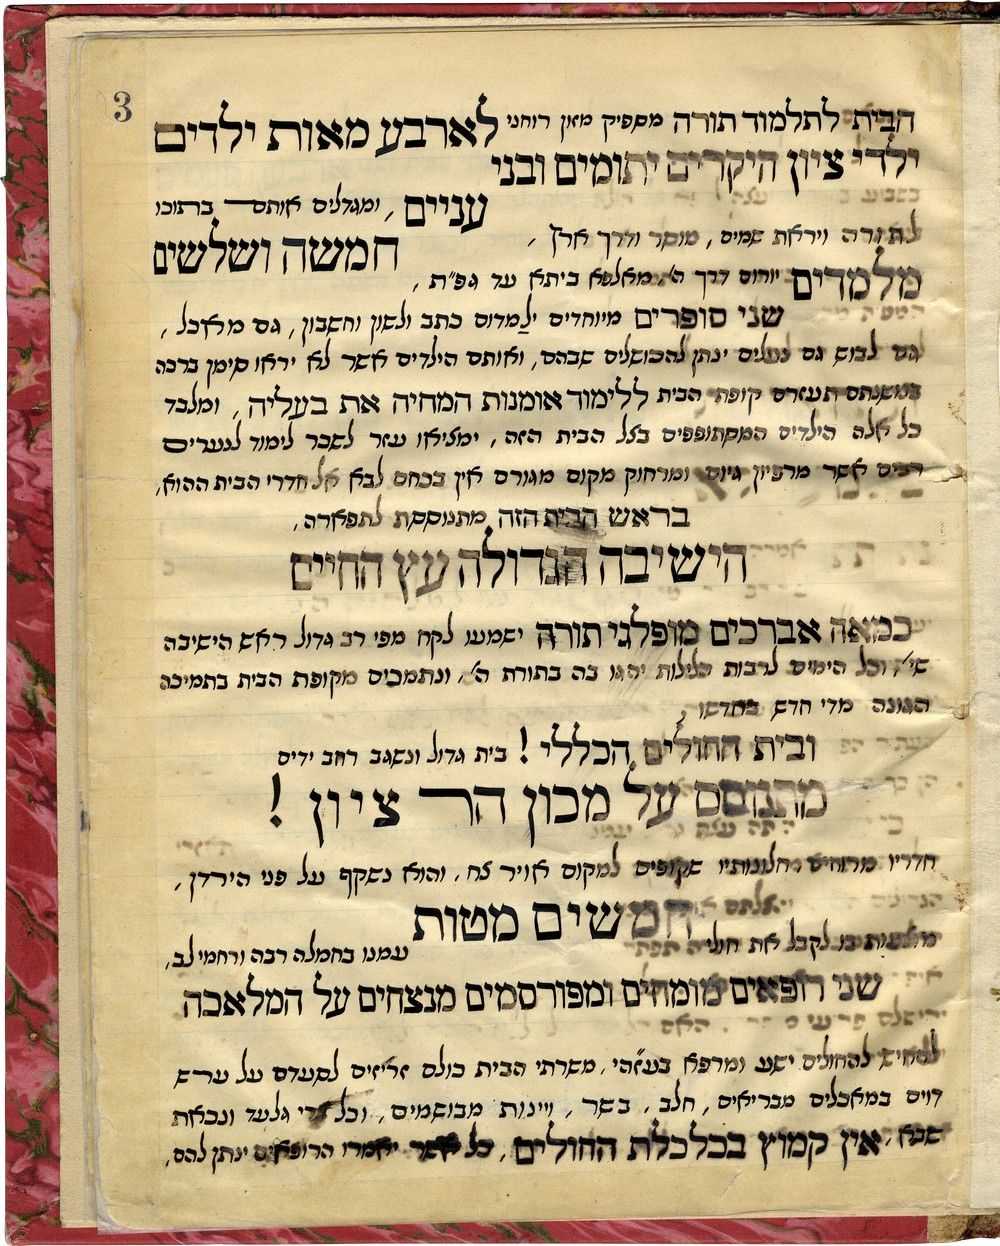 3
הבית לתלמוד תורה מספיק מזון רוחני לארבע מאות ילדים
ילדי ציון היקרים יתומים ובני
עניים, ומגדלים אותם בתוכו
לתורה ויראת שמים, מוסר ודרך ארץ,
חמשה ושלשים
מלמדים יורום דרך ה', מאלפא ביתא עד גפ״ת,
שני סופרים מיוחדים ילמדום כתב ולשון וחשבון, גם מאכל,
גם לבוש גם נעלים ינתן להכושלים שבהם, ואותם הילדים אשר לא יראו סימן ברכה
במשנתם תעזרם קופת הבית ללימוד אומנות המחיה את בעליה, ומלבד
כל אלה הילדים המסתופפים בצל הבית הזה, ימציאו עזר לשכר לימוד לנערים
רבים אשר מרפיון גיום ומרחוק מקום מגורם אין בכחם לבא אל חדרי הבית ההוא,
בראש הבית הזה מתנוססת לתפארה,
הישיבה הגדולה עץ החיים
כמאה אברכים מופלגי תורה ישמעו לקח מפי רב גדול ראש הישיבה
שי', וכל הימים לרבות הלילות יהגו בה בתורת ה', ונתמכים מקופת הבית בתמיכה
הגונה מדי חדש בחדשו,
ובית החולים הכללי! בית גדול ונשגב רחב ידים
מתנוסס על מכון הר ציון!
חדריו מרוחים חלונותיו שקופים למקום אויר צח, והוא נשקף על פני הירדן,
חמשים מטות
בו לקבל את חולי עמנו בחמלה רבה ורחמי לב,
שני רופאים מומחים ומפורסמים מנצחים על המלאכה
להחיש להחולים ישע ומרפא בעזהי, משרתי הבית כולם זריזים לסעדם על ערש
דוים במאכלים מבריאים, חלב, בשר, ויינות מבושמים, וכל צרי גלעד ונבאת
שבא, אין קמוץ בכלכלת החולים, כל אשר יאמרו הרופאים ינתן להם,